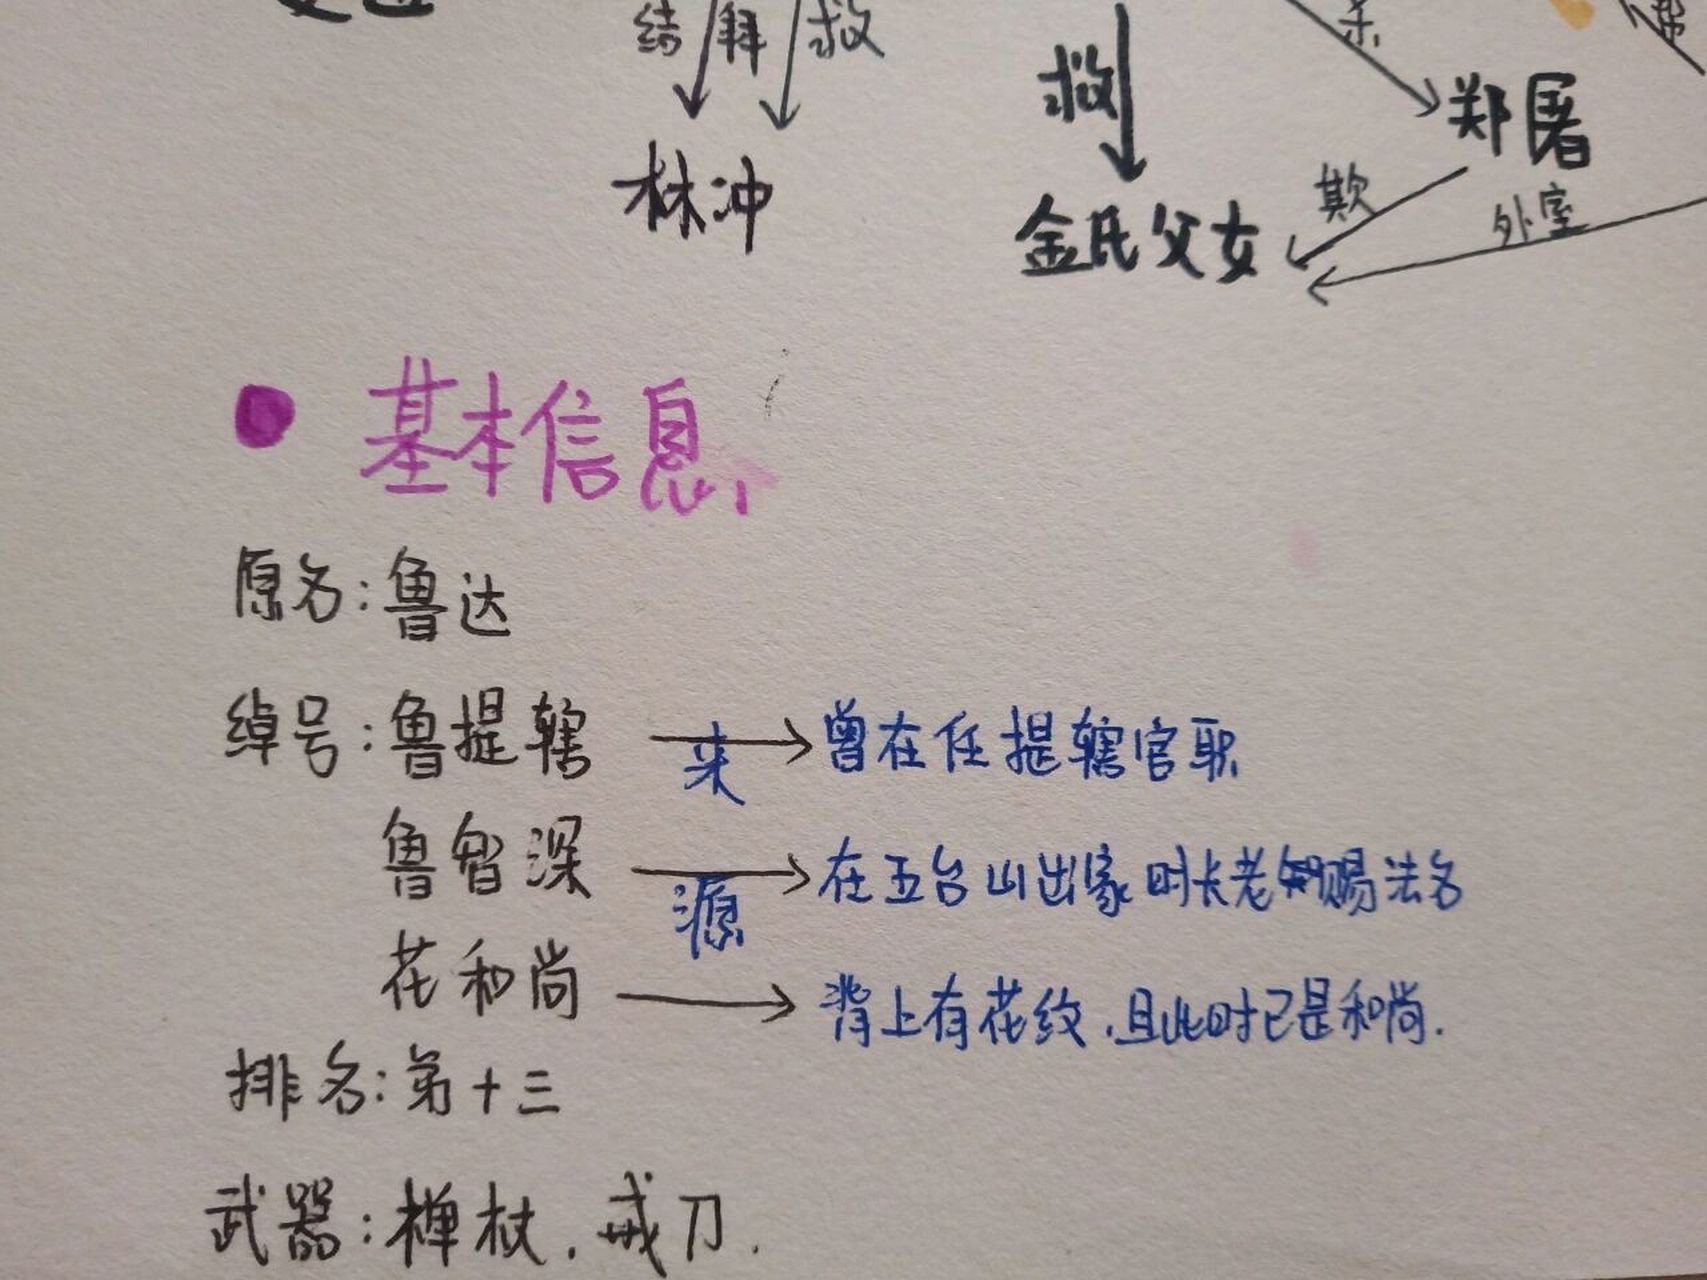 结 拜 救
救
杀
郑屠
林冲
金氏父女
欺
外室
基本信息
原名:鲁达
绰号:鲁提辖 来 曾在任提辖官职
鲁智深 源 在五台山出家时长老赐法名
花和尚 背上有花纹,且此时已是和尚.
排名:第十三
武器:禅杖.戒刀.